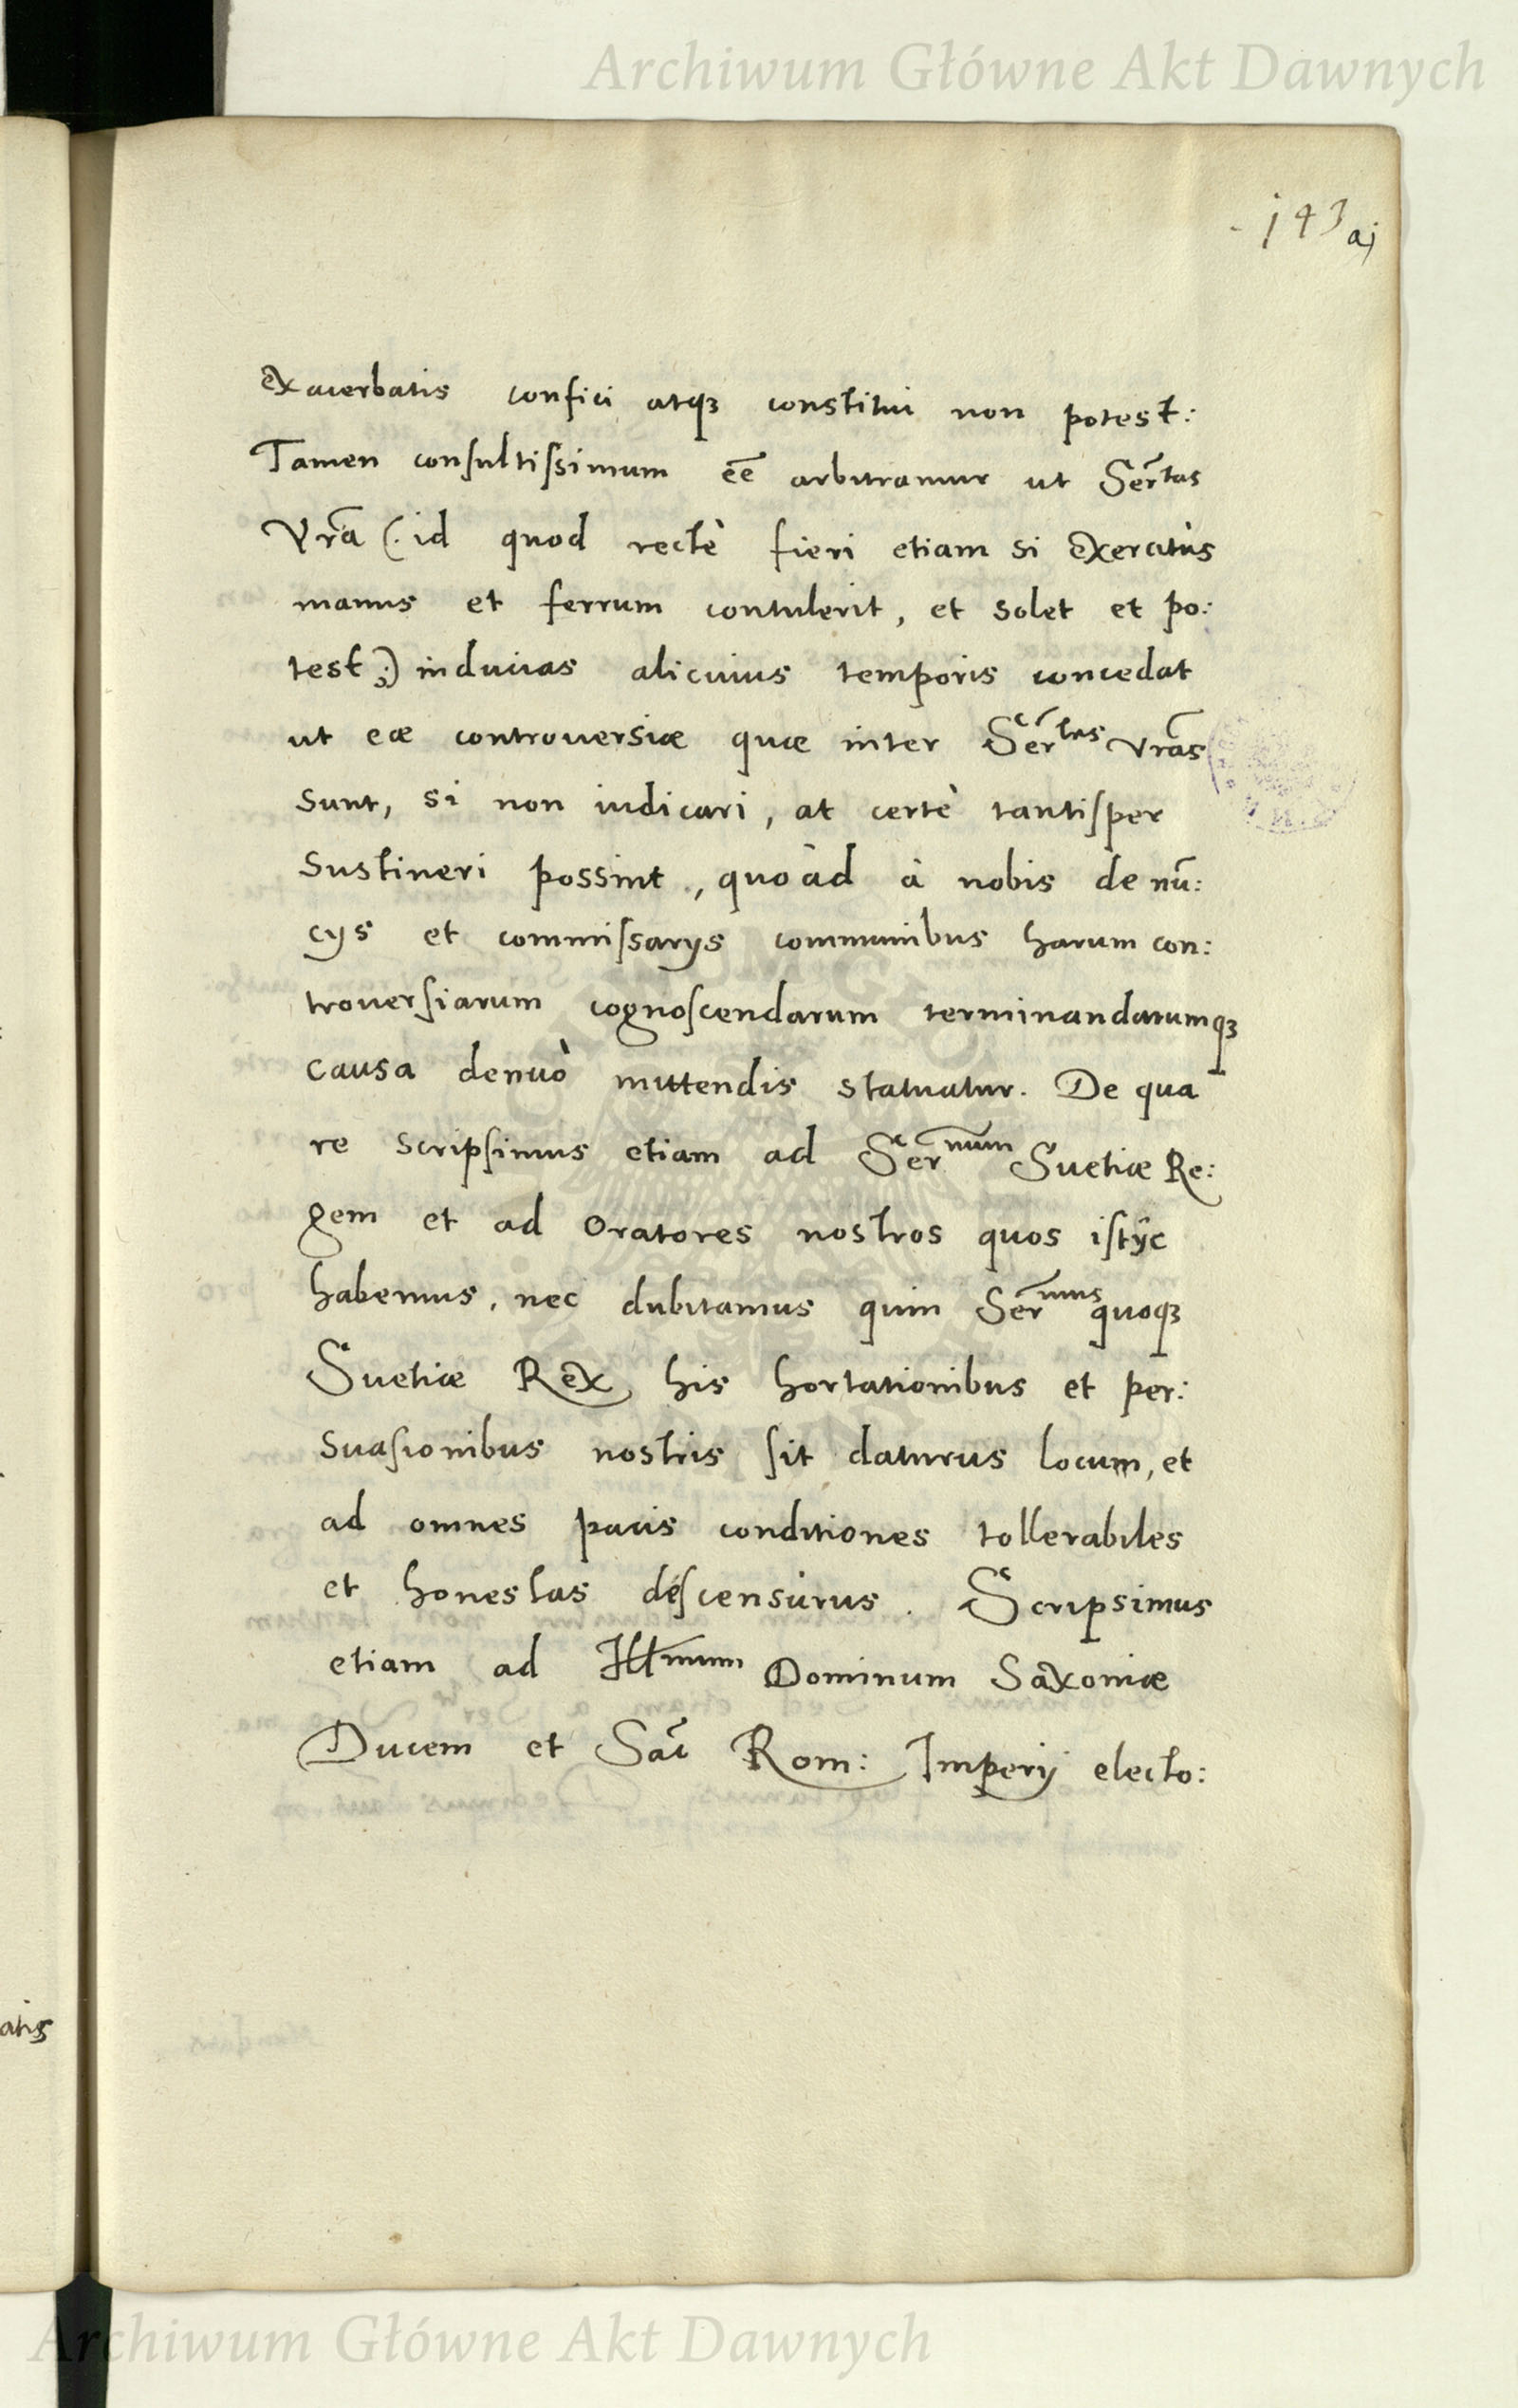 Archiwum Główne Akt Dawnych
143 a)
exacerbatis confici atq₃ constitui non potest:
Tamen consultissimum eē arbitramur ut Ser̄tas
Vrā (: id quod rectè fieri etiam si exercitus
manus et ferrum contulerit, et solet et po:
test :) inducias alicuius temporis concedat
ut eæ controuersiæ quæ inter Ser̄tes vrās
sunt, si non iudicari, at certè tantisper
sustineri possint, quoad à nobis de nū:
cys et commissarys communibus harum con:
trouersiarum cognoscendarum terminandarumq₃
causa denuò mittendis statuatur. De qua
re scripsimus etiam ad Ser̄mum Suetiæ Re:
gem et ad Oratores nostros quos istÿc
habemus, nec dubitamus quin Ser̄mus quoq₃
Suetiæ Rex his hortationibus et per:
suasionibus nostris sit daturus locum, et
ad omnes pacis conditiones tollerabiles
et honestas descensurus. Scripsimus
etiam ad Illmum Dominum Saxoniæ
Ducem et Sac̄ Rom: Impery electo:
atis
Archiwum Główne Akt Dawnych